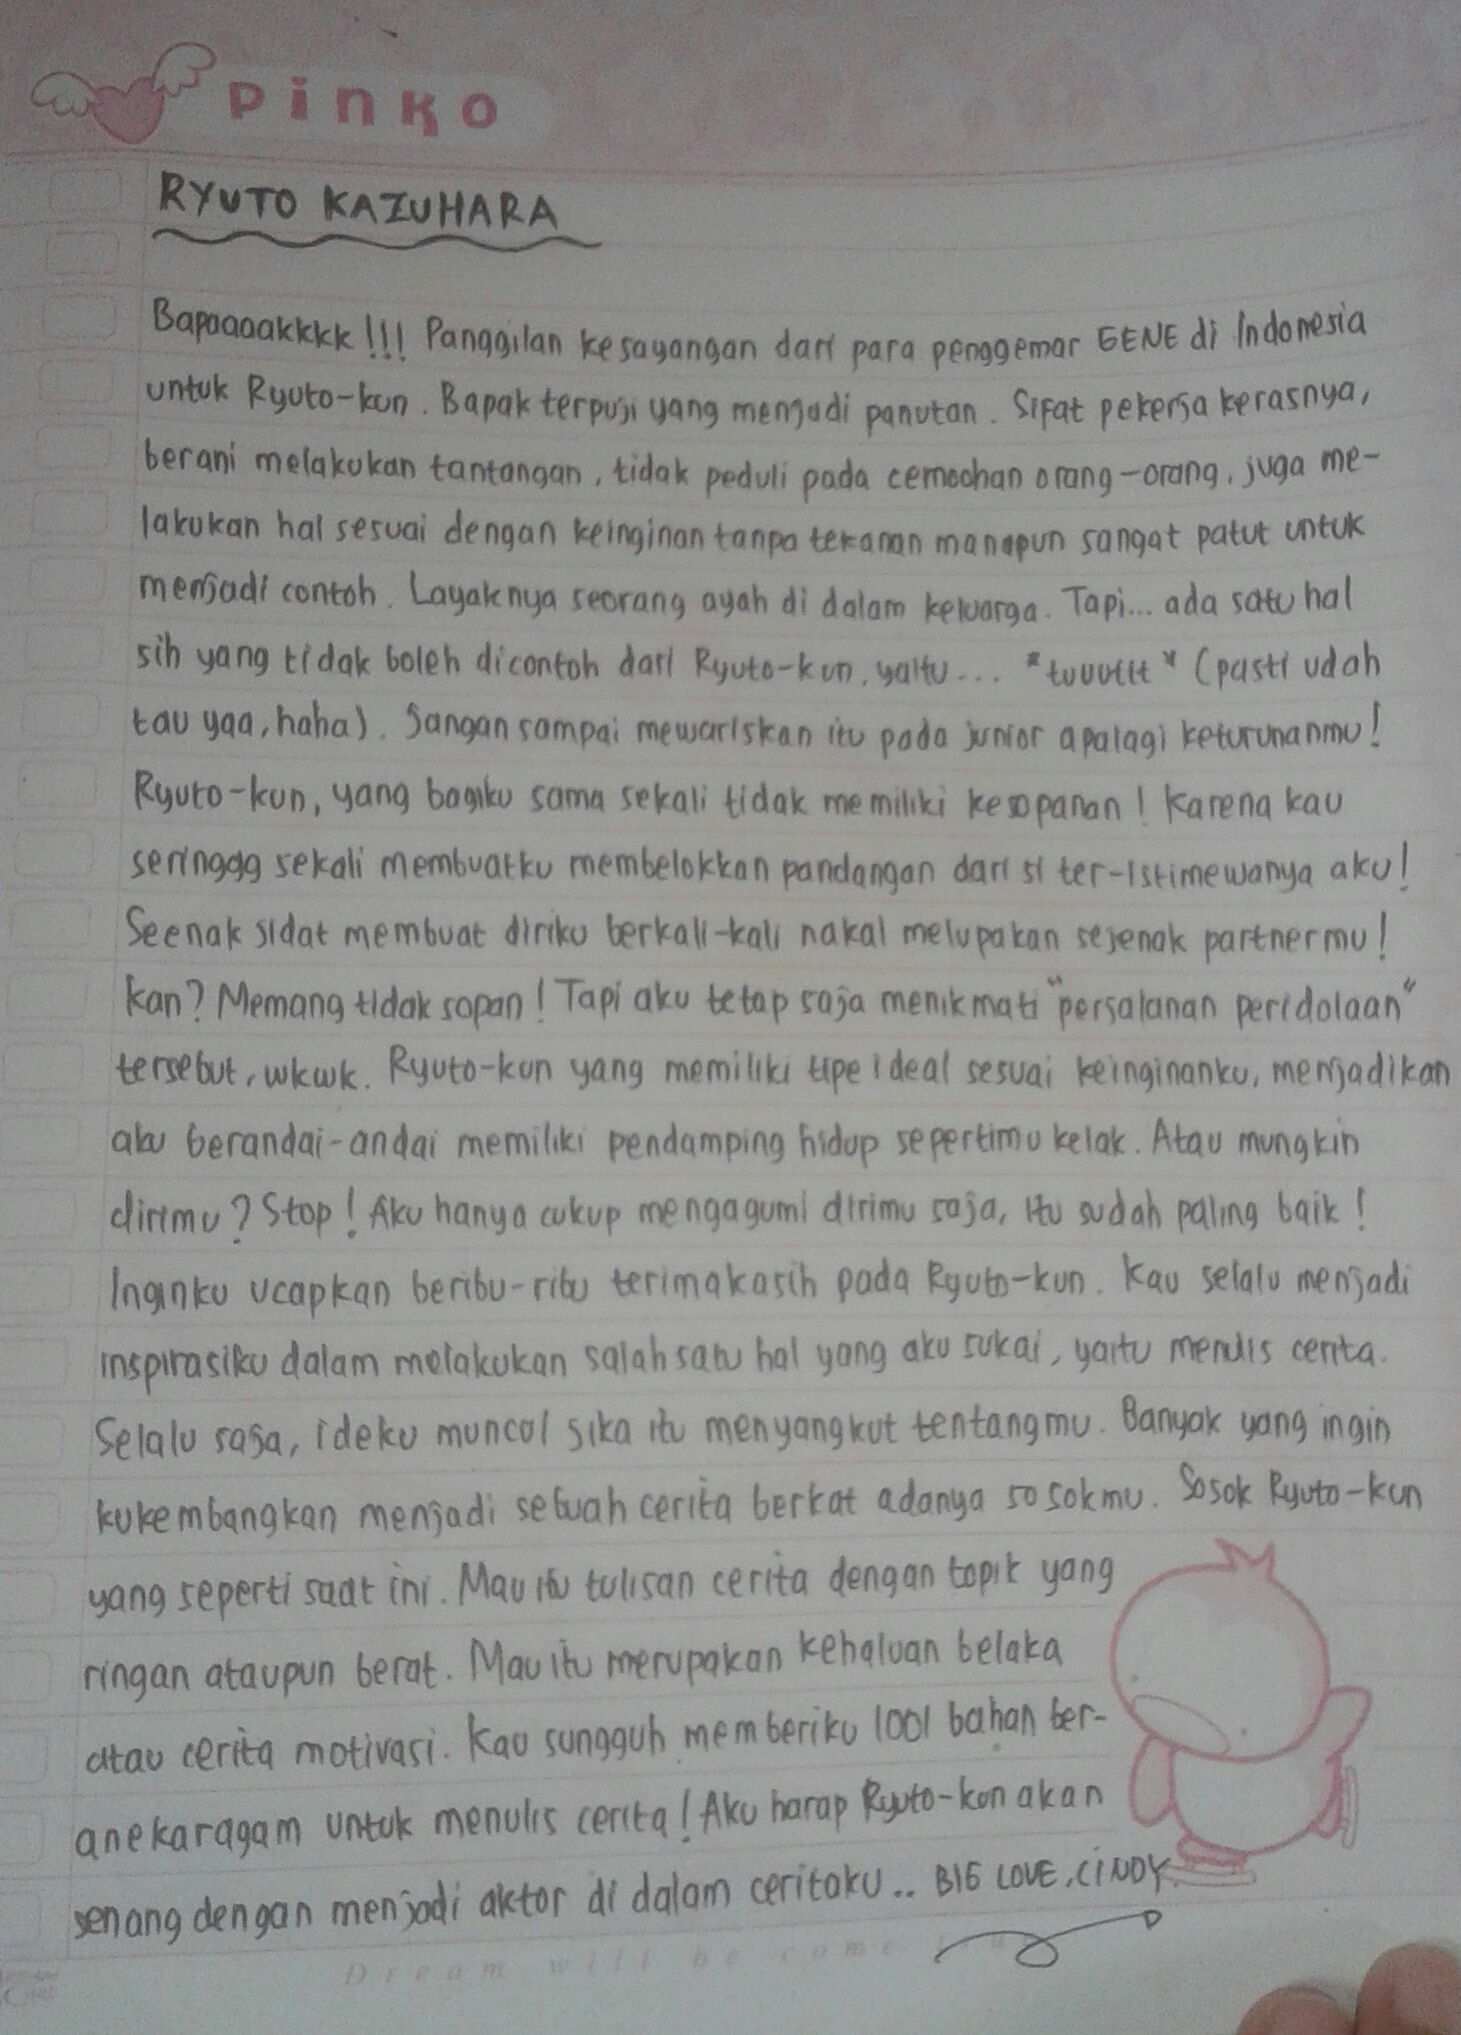 pinko
RYUTO KAZUHARA
Bapaaaakkkk!!! Panggilan kesayangan dari para penggemar GENE di Indonesia
untuk Ryuto-kun. Bapak terpuji yang menjadi panutan. Sifat pekerja kerasnya,
berani melakukan tantangan, tidak peduli pada cemoohan orang-orang, juga me-
lakukan hal sesuai dengan keinginan tanpa tekanan manapun sangat patut untuk
menjadi contoh. Layaknya seorang ayah di dalam keluarga. Tapi... ada satu hal
sih yang tidak boleh dicontoh dari Ryuto-kun, yaitu... *tuuuttt* (pasti udah
tau yaa, haha). Jangan sampai mewariskan itu pada junior apalagi keturunanmu!
Ryuto-kun, yang bagiku sama sekali tidak memiliki kesopanan! Karena kau
seringgg sekali membuatku membelokkan pandangan dari si ter-istimewanya aku!
Seenak jidat membuat diriku berkali-kali nakal melupakan sejenak partnermu!
Kan? Memang tidak sopan! Tapi aku tetap saja menikmati "perjalanan peridolaan"
tersebut, wkwk. Ryuto-kun yang memiliki tipe ideal sesuai keinginanku, menjadikan
aku berandai-andai memiliki pendamping hidup sepertimu kelak. Atau mungkin
dirimu? Stop! Aku hanya cukup mengagumi dirimu saja, itu sudah paling baik!
Inginku ucapkan beribu-ribu terimakasih pada Ryuto-kun. Kau selalu menjadi
inspirasiku dalam melakukan salah satu hal yang aku sukai, yaitu menulis cerita.
Selalu saja, ideku muncul jika itu menyangkut tentangmu. Banyak yang ingin
kukembangkan menjadi sebuah cerita berkat adanya sosokmu. Sosok Ryuto-kun
yang seperti saat ini. Mau itu tulisan cerita dengan topik yang
ringan ataupun berat. Mau itu merupakan kehaluan belaka
atau cerita motivasi. Kau sungguh memberiku 1001 bahan ber-
anekaragam untuk menulis cerita! Aku harap Ryuto-kun akan
senang dengan menjadi aktor di dalam ceritaku.. BIG LOVE, CINDY
Dream will be come